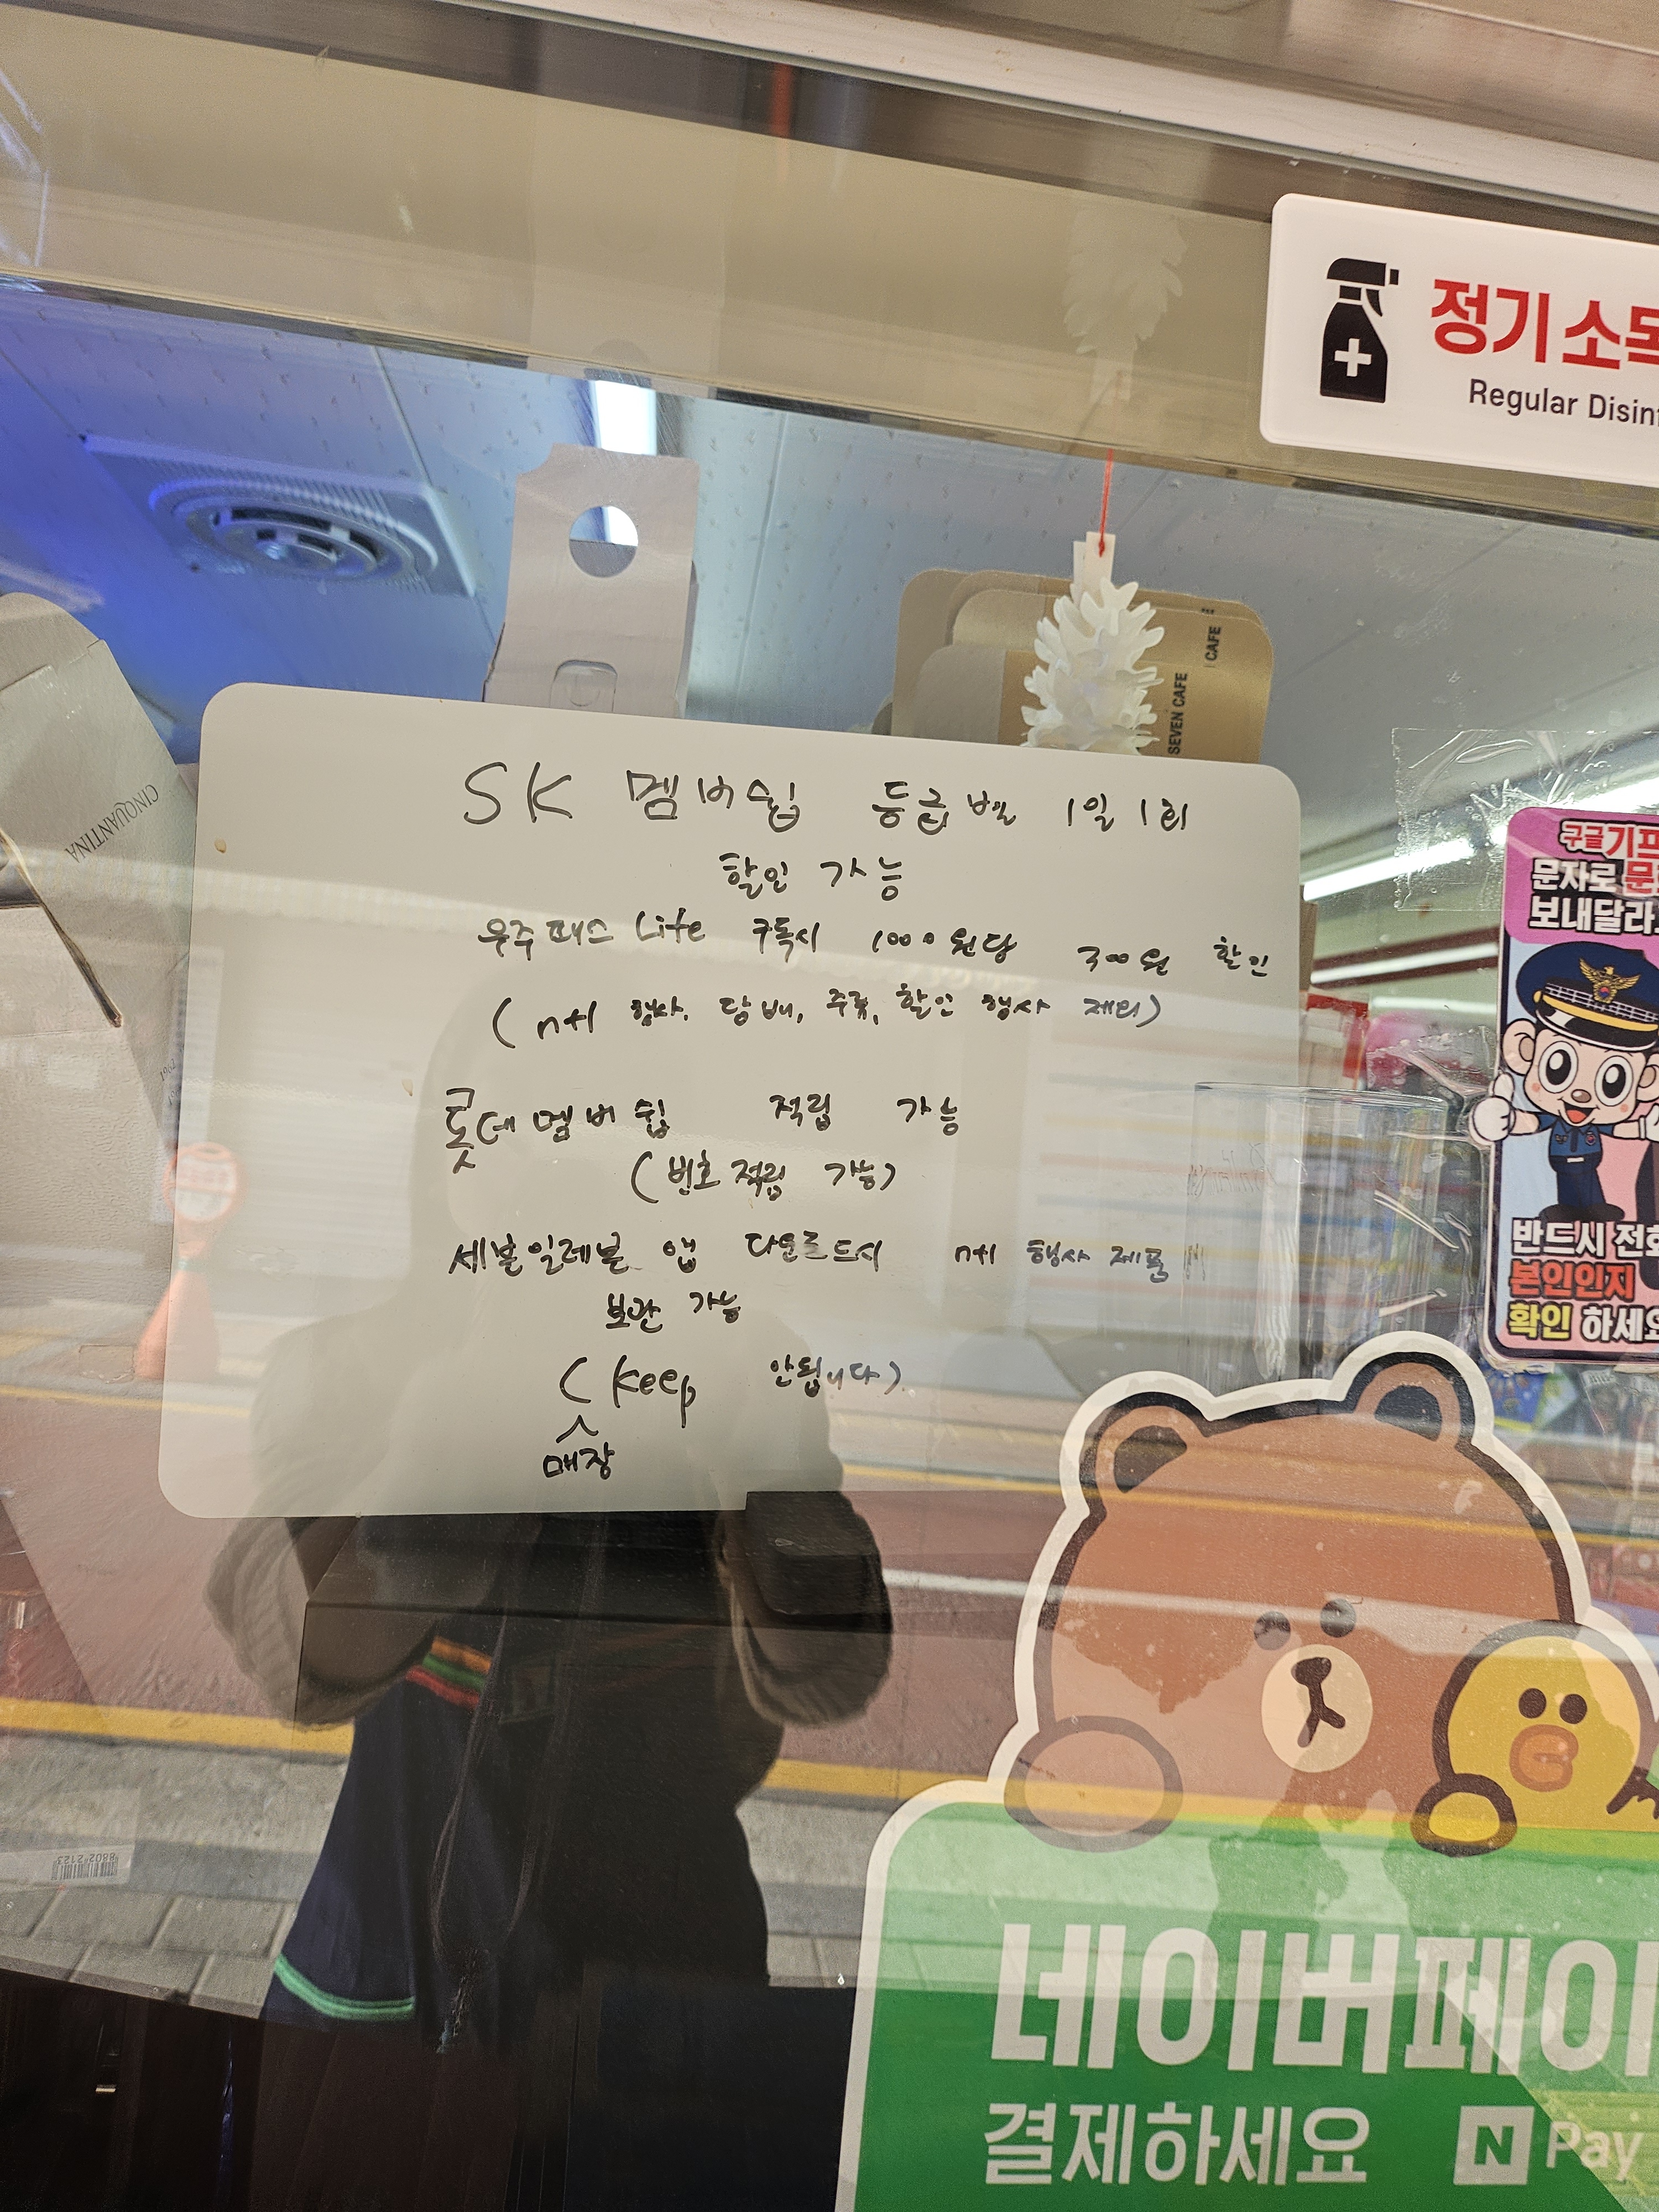 정기소독
Regular Disinf
CAFE
SEVEN CAFE
CINQUANTINA
SK 멤버쉽 등급별 1일 1회
할인 가능
우주패스 Life 구독시 1000원당 300원 할인
(n+1 행사, 담배, 주류, 할인 행사 제외)
롯데멤버쉽 적립 가능
(번호적립 가능)
세븐일레븐 앱 다운로드시 n+1 행사 제품
보관 가능
(keep 안됩니다)
매장
구글기프
문자로 문
보내달라
반드시 전화
본인인지
확인 하세요
네이버페이
결제하세요 N Pay